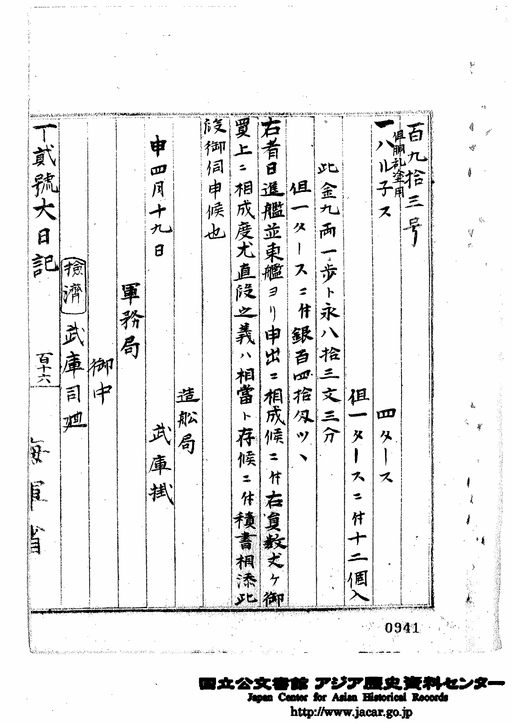 百九拾三号
一ハル子ス 四タース
但胴乱塗用
但一タースニ付十二個入
此金九両一歩ト永八拾三文三分
但一タースニ付銀百四拾匁ツヽ
右者日進艦並東艦ヨリ申出ニ相成候ニ付右員数丈ケ御
買上ニ相成度尤直段之義ハ相當ト存候ニ付積書相添此
段御伺申候也
造舩局
申四月十九日 武庫掛
軍務局
御中
撿濟 武庫司
丁貳號大日記 百十六 海軍省
0941
国立公文書館 アジア歴史資料センター
Japan Center for Asian Historical Records
http://www.jacar.go.jp